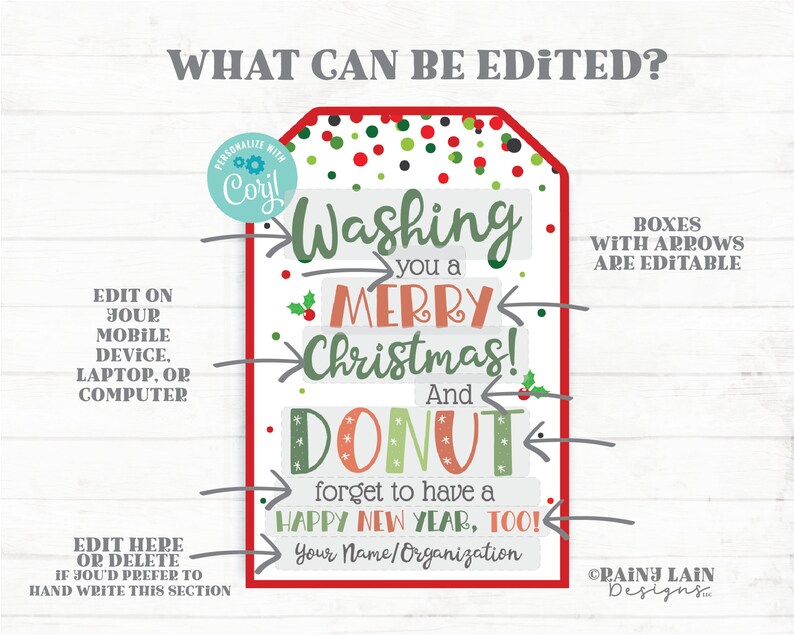 WHAT CAN BE EDITED?
PERSONALIZE WITH
Corjl
Washing
you a
MERRY
Christmas!
And
DONUT
forget to have a
HAPPY NEW YEAR, TOO!
Your Name/Organization
BOXES
WITH ARROWS
ARE EDITABLE
EDIT ON
YOUR
MOBILE
DEVICE,
LAPTOP, OR
COMPUTER
EDIT HERE
OR DELETE
IF YOU'D PREFER TO
HAND WRITE THIS SECTION
©RAINY LAIN
Designs LLC